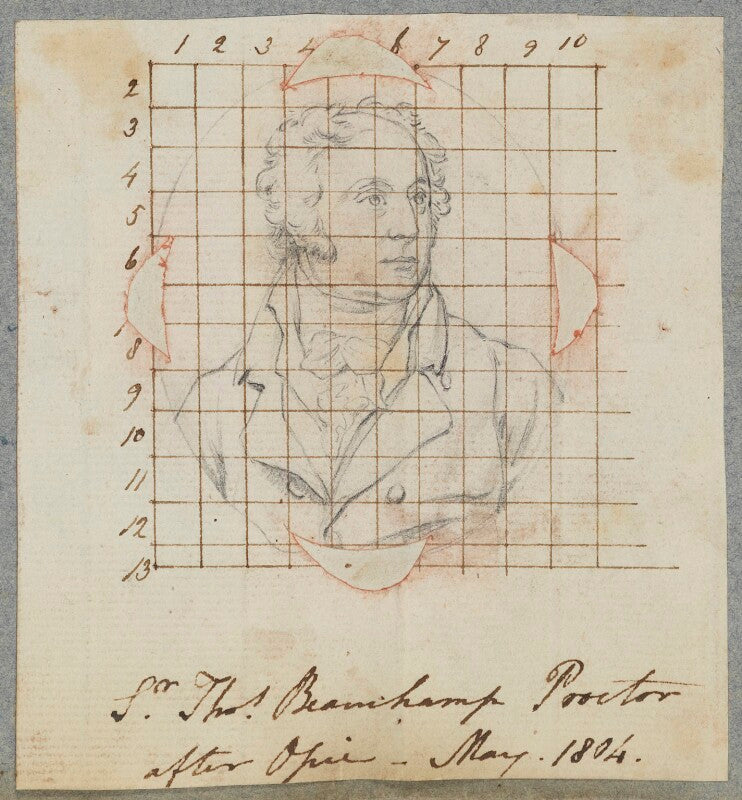 1 2 3 4 6 7 8 9 10
2
3
4
5
6
8
9
10
11
12
13
Sr. Thos. Beauchamp Proctor
after Opie - May. 1804.